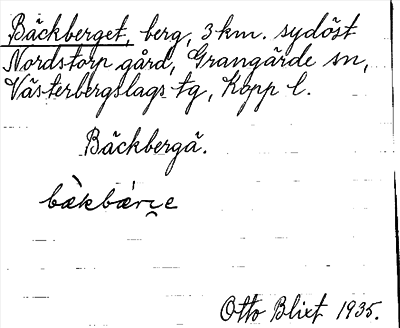 Bäckberget, berg, 3 km. sydöst
Nordstorp gård, Grangärde sn,
Västerbergslags tg, Kopp l.
Bäckbergä.
Otto Blixt 1935.